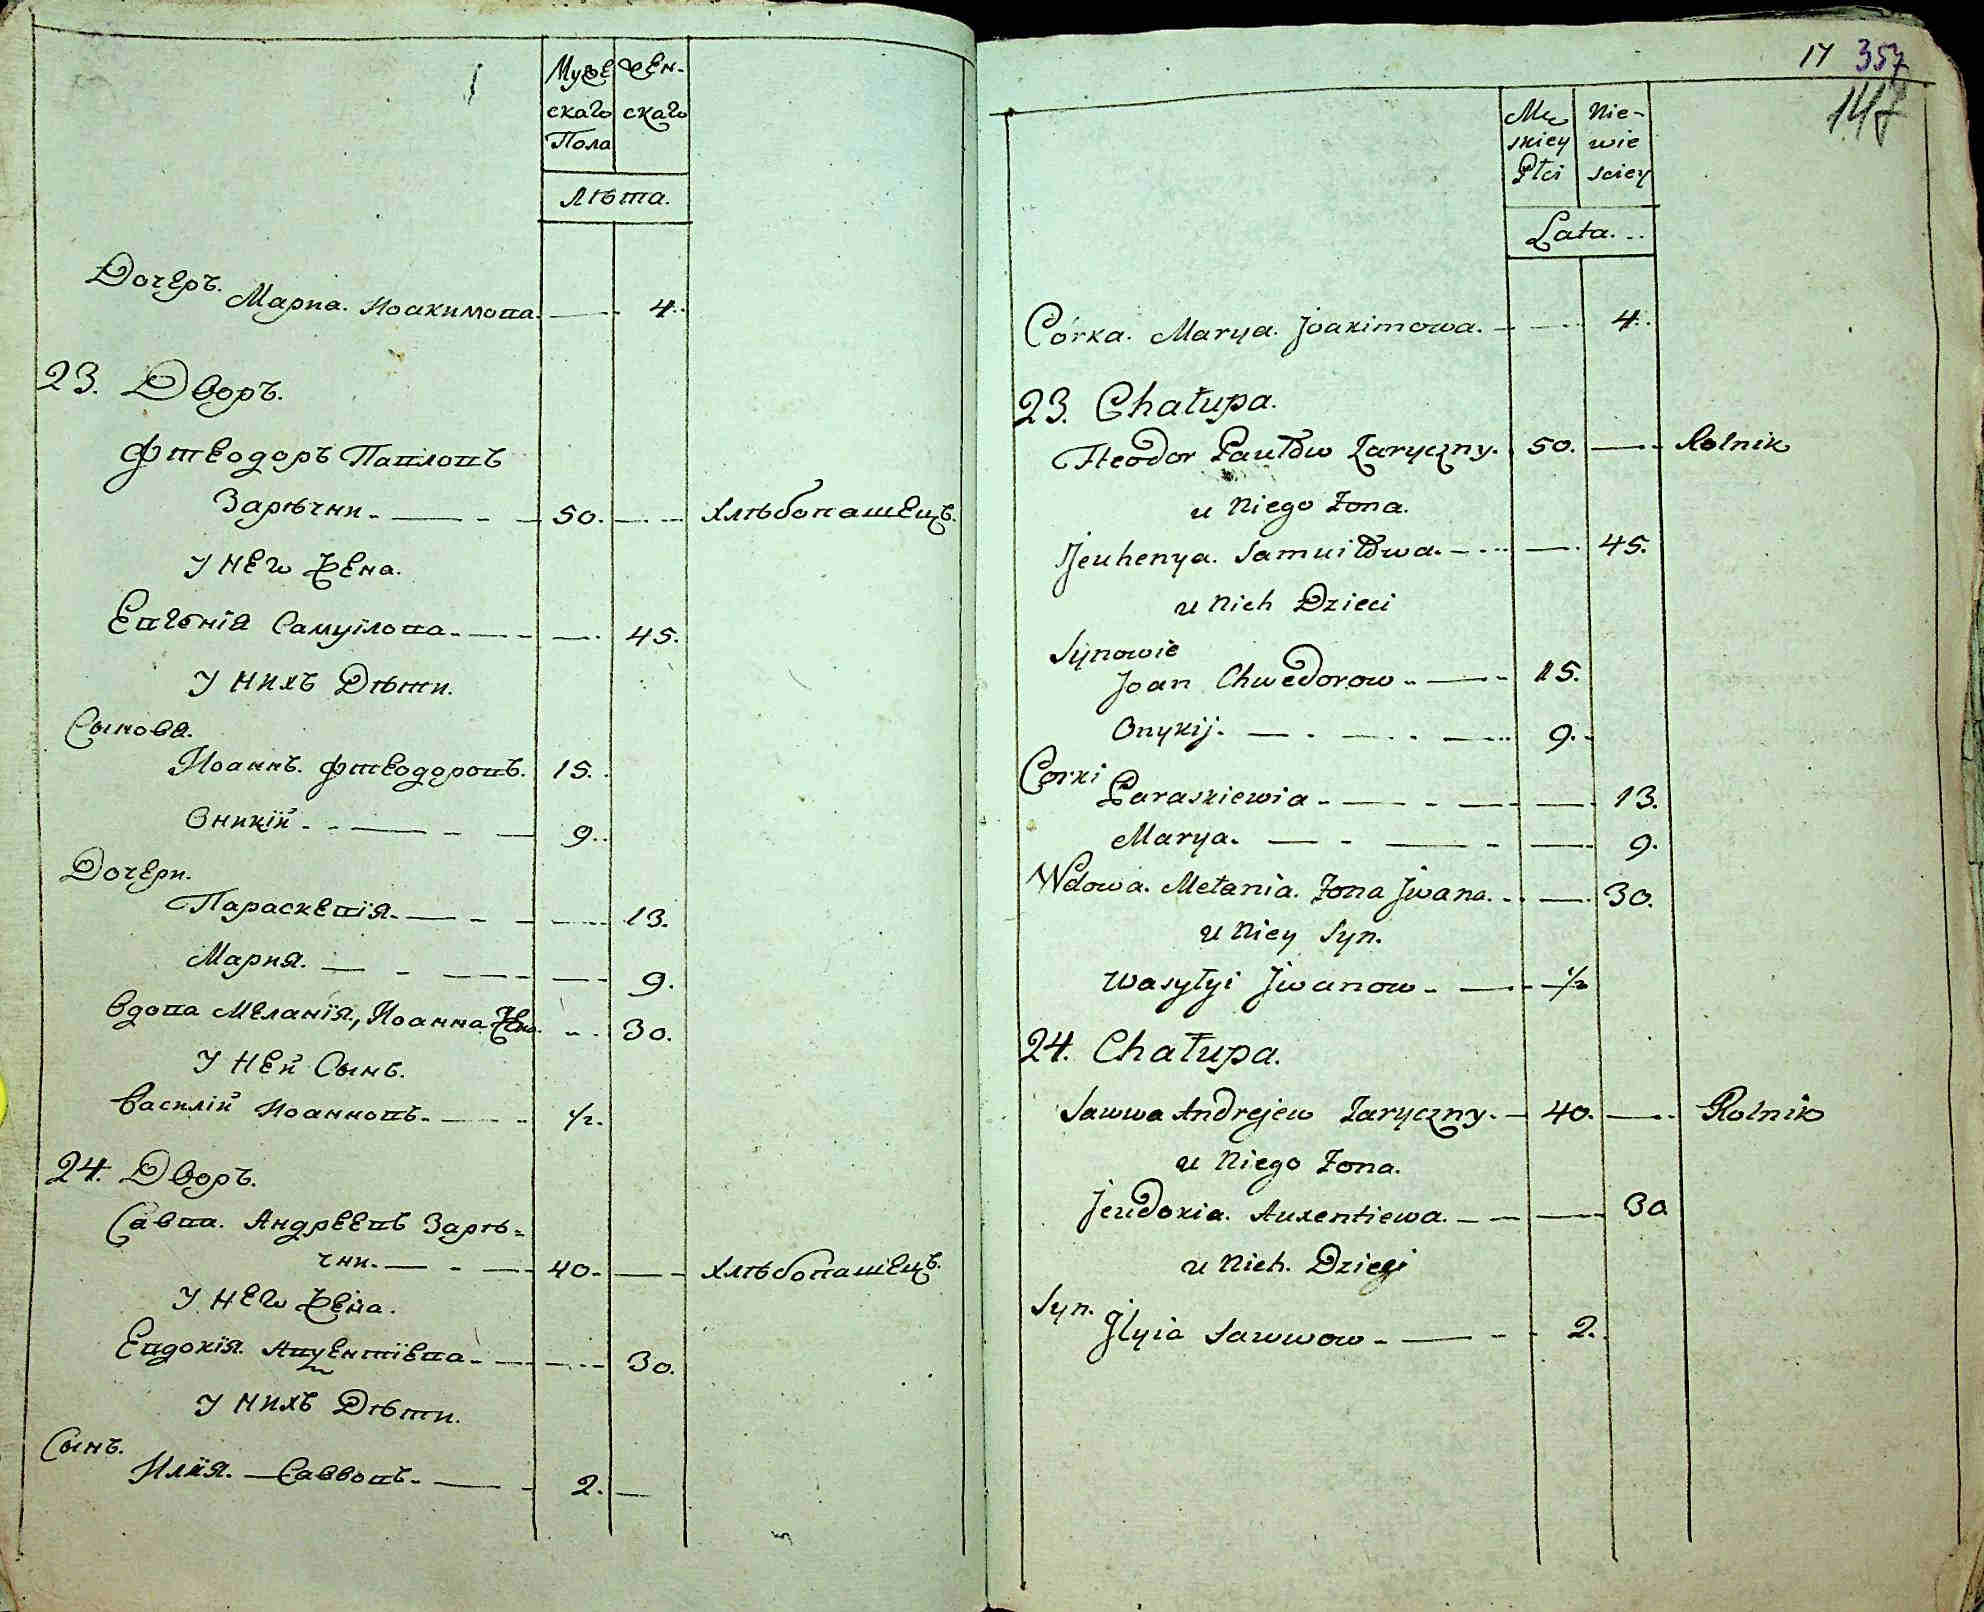 Муже Жен-
скаго скаго
Пола
Лѣта.
Дочеръ. Мариа. Иоакимова. 4.
23. Дворъ.
Ѳтеодоръ Павловъ
Зарѣчни. 50. Хлѣбопашецъ.
У него Жена.
Евгенїа Самуілова. 45.
У нихъ Дѣти.
Сыновя.
Иоаннъ. Ѳтеодоровъ. 15.
Оникїй. 9.
Дочери.
Параскевїя. 13.
Мария. 9.
Вдова Меланїя, Иоанна Жена. 30.
У ней Сынъ.
Василїй Иоанновъ. 1/2.
24. Дворъ.
Савва. Андреевъ Зарѣ=
чни. 40. Хлѣбопашецъ.
У него Жена.
Евдокїя. Авѵентїева. 30.
У нихъ Дѣти.
Сынъ.
Илїя. Саввовъ. 2.
17 357
147
Mę Nie-
skiey wie
Płci sciey
Lata.
Córka. Marya. Joakimowa. 4.
23. Chałupa.
Fteodor Pawłow Zaryczny. 50. Rolnik
u Niego Zona.
Jeuhenya. Samuiłowa. 45.
u Nich Dzieci
Synowie
Joan Chwedorow 15.
Onykij. 9.
Corki
Paraskiewia 13.
Marya. 9.
Wdowa. Mełania. Zona Jwana. 30.
u Niey Syn.
Wasylyi Jwanow 1/2
24. Chałupa.
Sawwa Andrejew Zaryczny. 40. Rolnik
u Niego Zona.
Jeudokia. Auxentiewa. 30
u Nich. Dzieci
Syn.
Jlyia Sawwow 2.